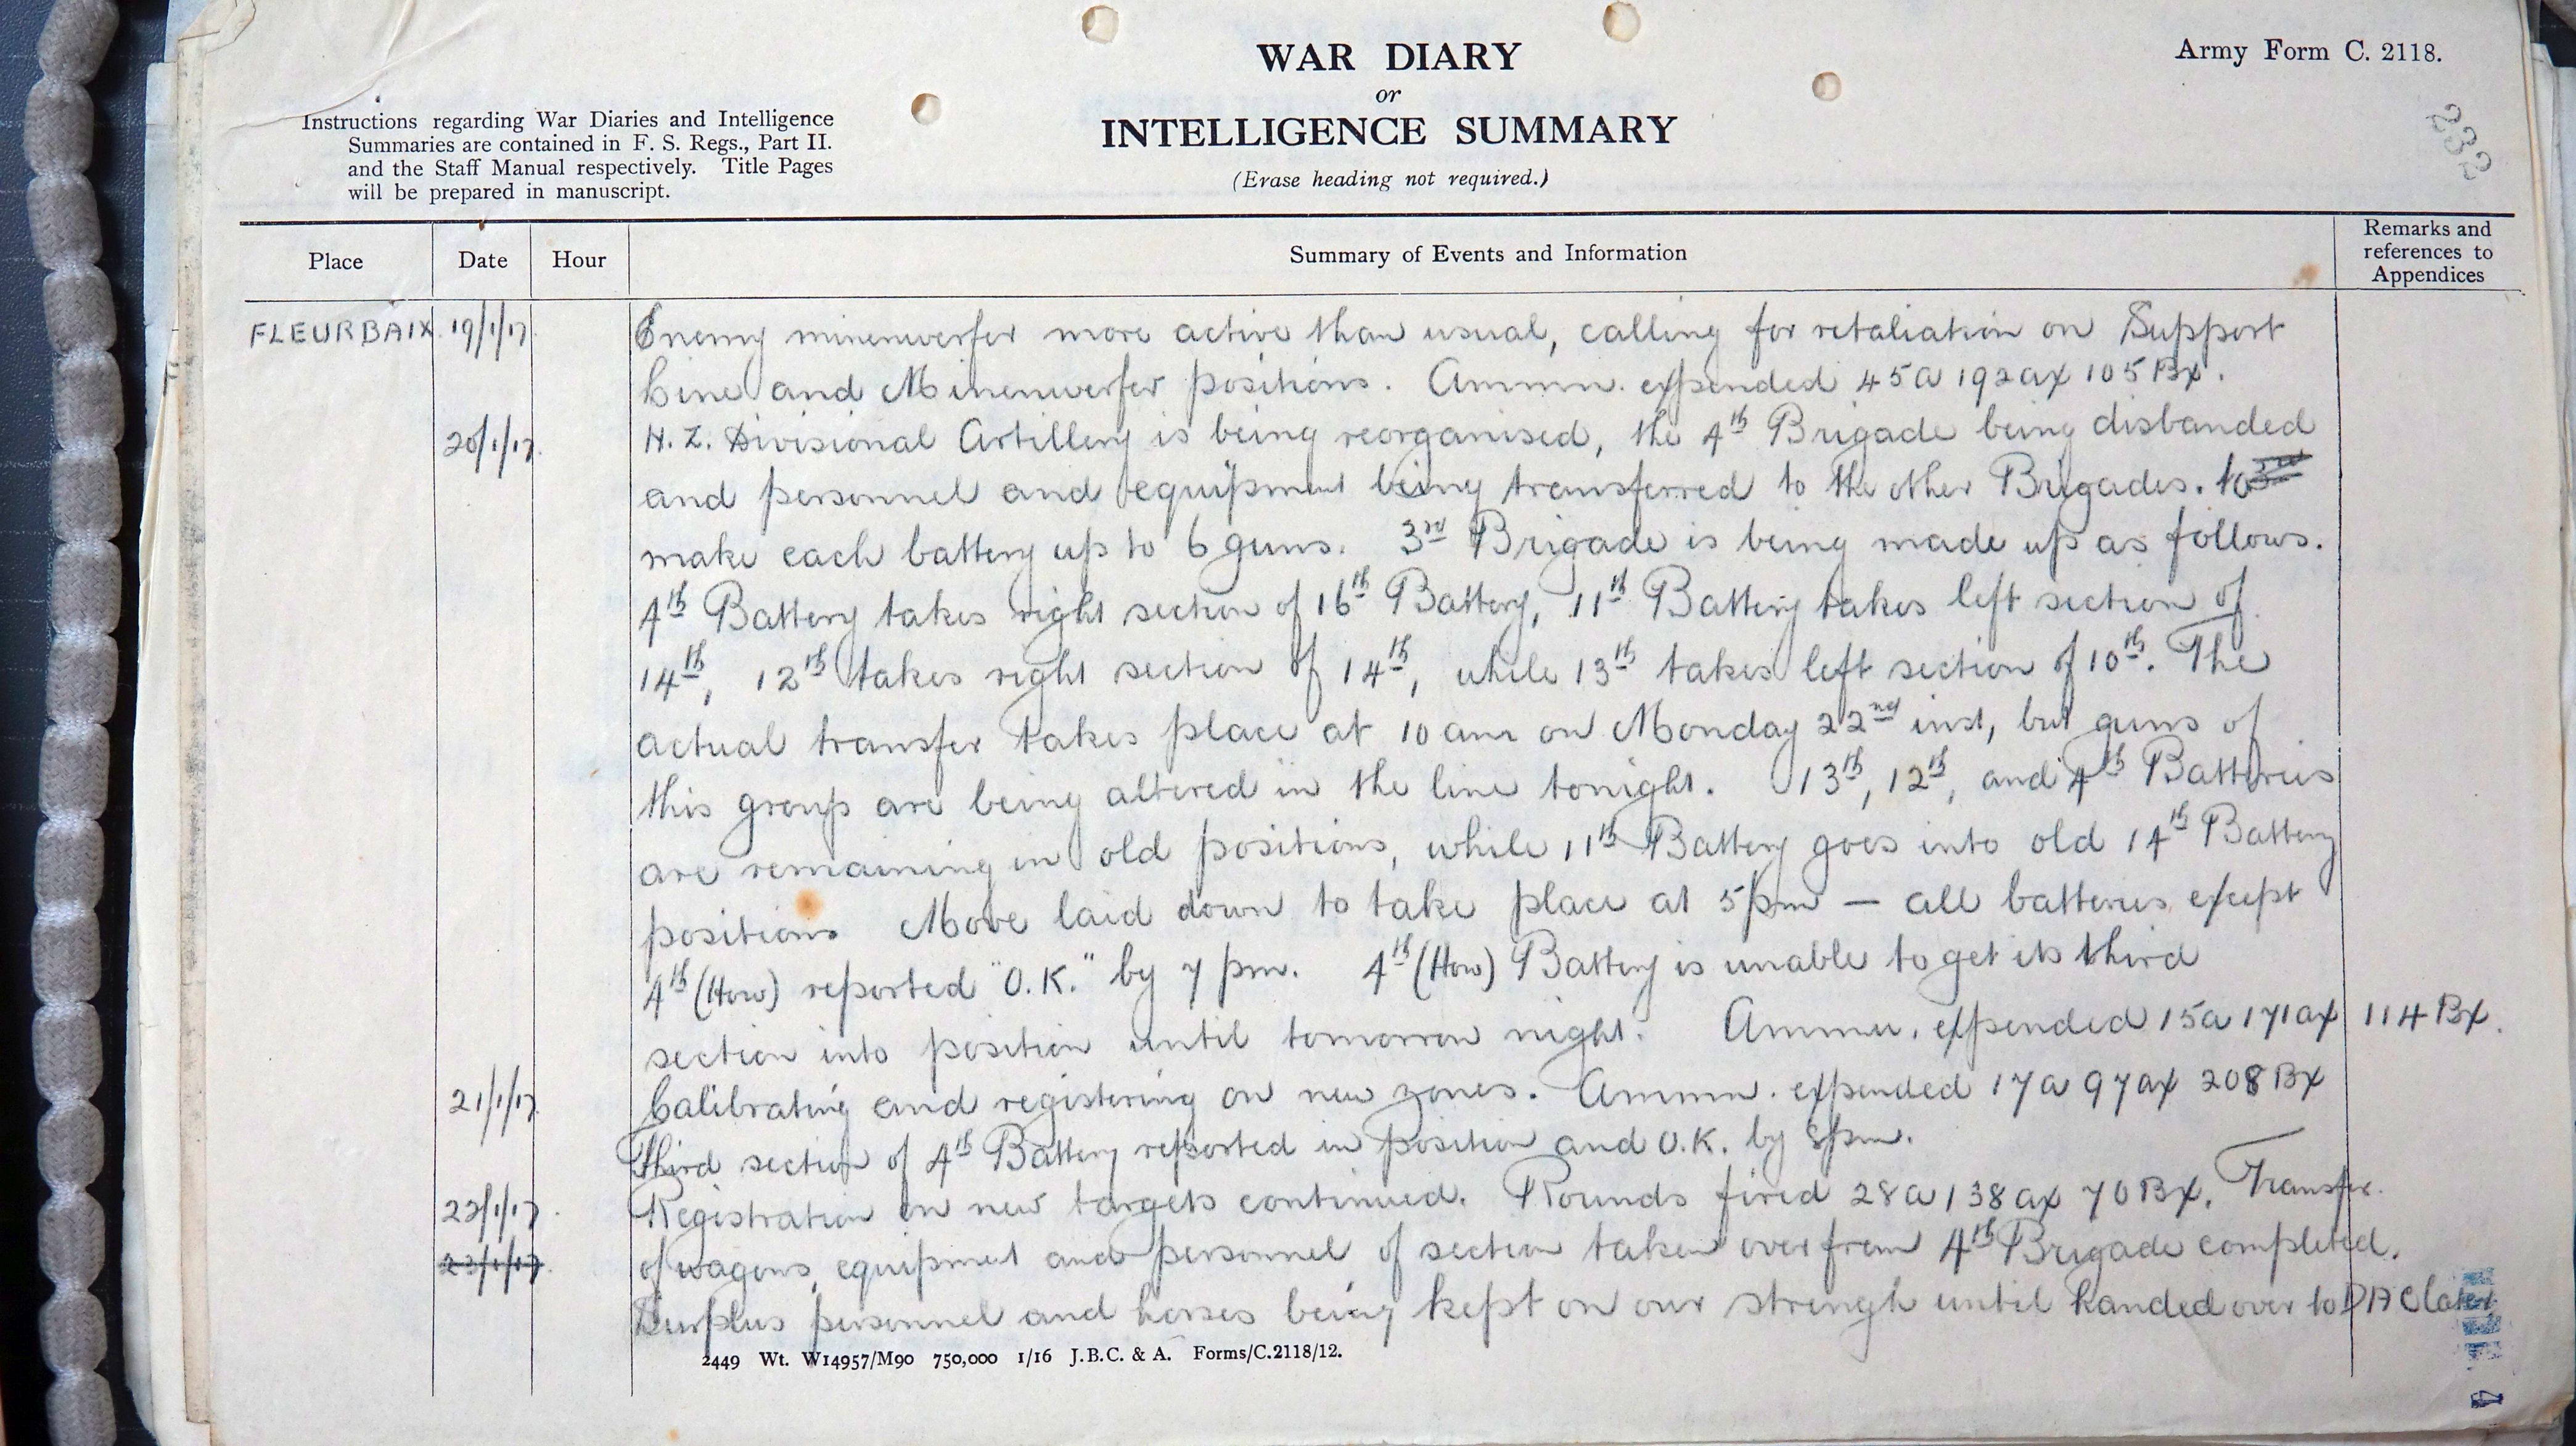 WAR DIARY
or
INTELLIGENCE SUMMARY
(Erase heading not required.)
Army Form C. 2118.
232
Instructions regarding War Diaries and Intelligence
Summaries are contained in F. S. Regs., Part II.
and the Staff Manual respectively. Title Pages
will be prepared in manuscript.
Place Date Hour Summary of Events and Information Remarks and references to Appendices
FLEURBAIX. 19/1/17. Enemy minenwerfer more active than usual, calling for retaliation on Support
Line and Minenwerfer positions. Ammn. expended 45a 192ax 105Bx.
20/1/17. N.Z. Divisional Artillery is being reorganised, the 4th Brigade being disbanded
and personnel and equipment being transferred to the other Brigades. to 3rd
make each battery up to 6 guns. 3rd Brigade is being made up as follows.
4th Battery takes right section of 16th Battery, 11th Battery takes left section of
14th, 12th takes right section of 14th, while 13th takes left section of 10th. The
actual transfer takes place at 10 am on Monday 22nd inst, but guns of
this group are being altered in the line tonight. 13th, 12th, and 4th Batteries
are remaining in old positions, while 11th Battery goes into old 14th Battery
positions Move laid down to take place at 5pm — all batteries except
4th (How) reported "O.K." by 7 pm. 4th (How) Battery is unable to get its third
section into position until tomorrow night. Ammn. expended 15a 171ax 114 Bx.
21/1/17. Calibrating and registering on new zones. Ammn. expended 17a 97ax 208Bx
Third section of 4th Battery reported in position and O.K. by 8pm.
22/1/17. Registration on new targets continued. Rounds fired 28a 138ax 70Bx. Transfer
23/1/17. of wagons, equipment and personnel of section taken over from 4th Brigade completed.
Surplus personnel and horses being kept on our strengh until handed over to DAC later.
2449 Wt. W14957/M90 750,000 1/16 J.B.C. & A. Forms/C.2118/12.